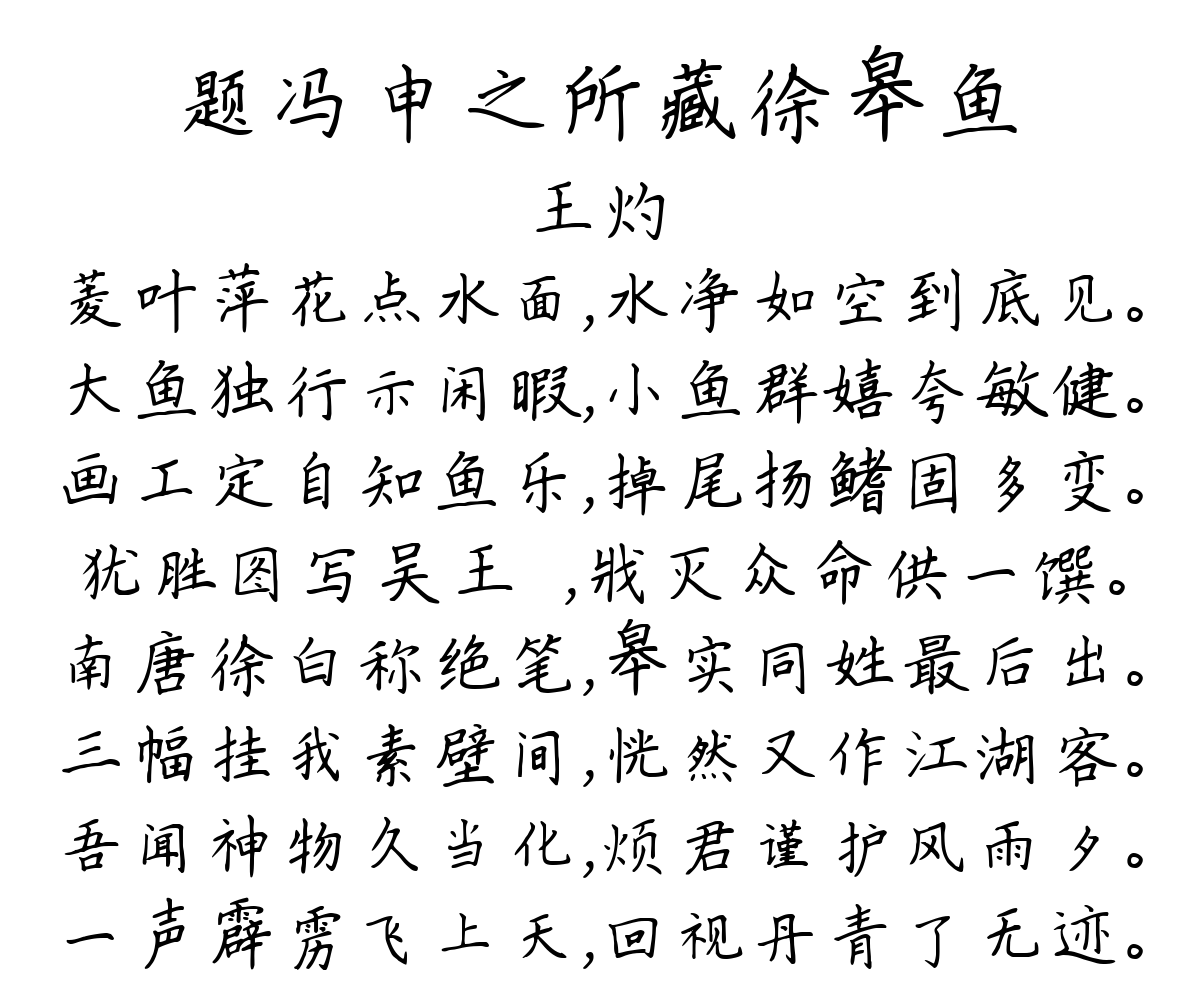 题冯申之所藏徐皋鱼
王灼
菱叶萍花点水面,水净如空到底见。
大鱼独行示闲暇,小鱼群嬉夸敏健。
画工定自知鱼乐,掉尾扬鳍固多变。
犹胜图写吴王 ,戕灭众命供一馔。
南唐徐白称绝笔,皋实同姓最后出。
三幅挂我素壁间,恍然又作江湖客。
吾闻神物久当化,烦君谨护风雨夕。
一声霹雳飞上天,回视丹青了无迹。